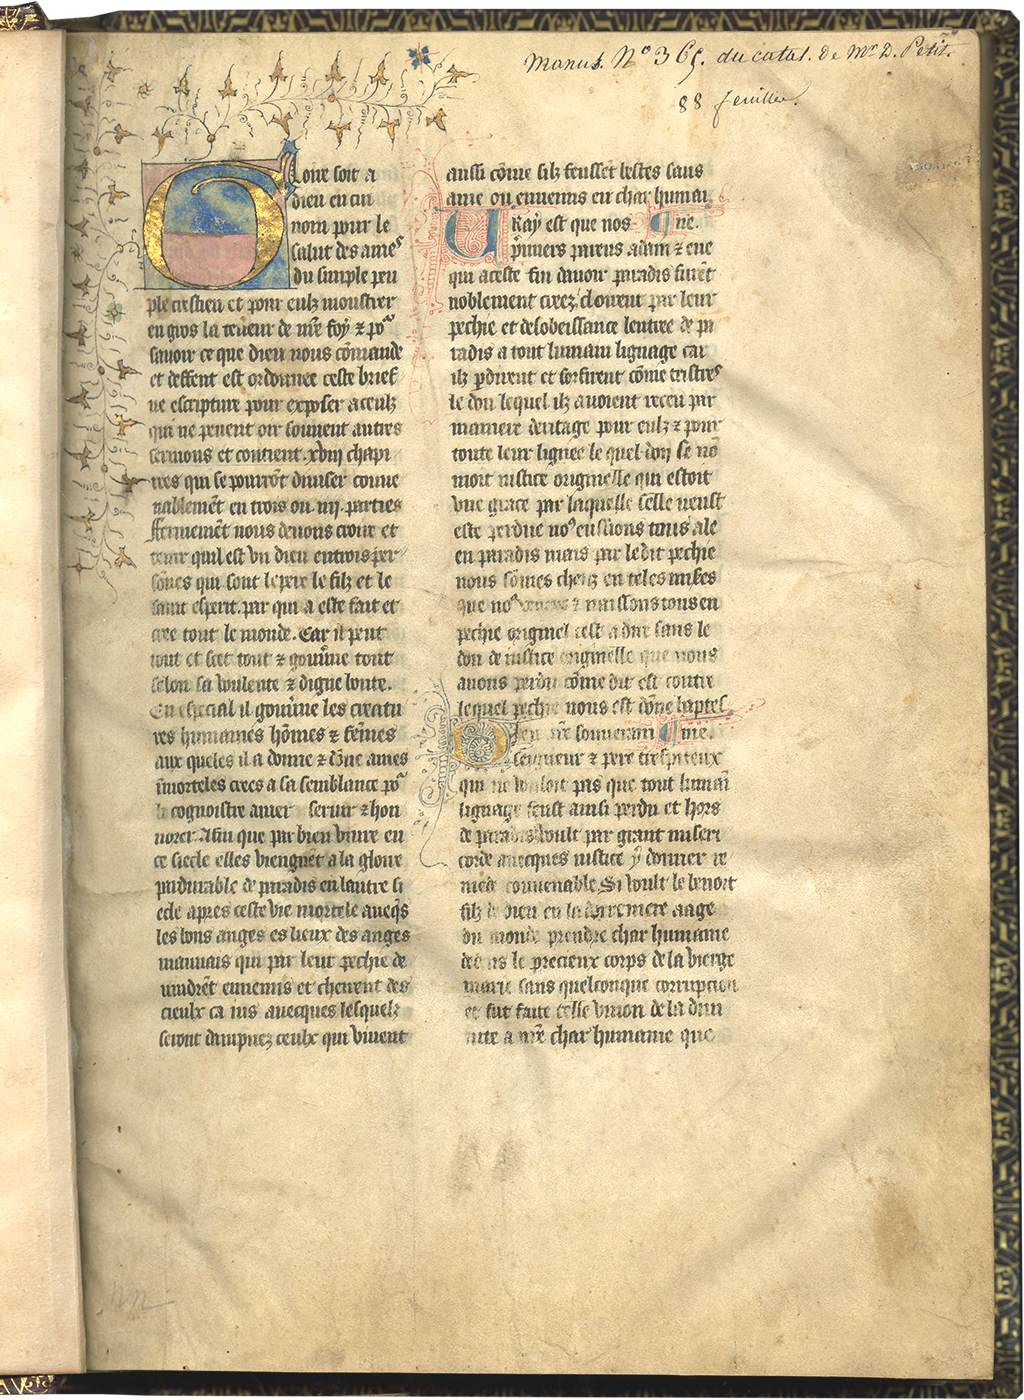 Manus. N° 365. du catal. de Mr. D. Petit.
88 feuillets.
Gloire soit a
dieu en cui
nom pour le
salut des ames
du simple peu
ple crestien et pour eulz monstrer
en gros la teneur de nr̄e foy ⁊ po᷑
savoir ce que dieu nous cōmande
et deffent est ordonnee ceste brief
ue escripture pour exposer a ceulz
qui ne peuent oir souuent autres
sermons et contient .xviij chapi
tres qui se pourrōt diuiser conue
nablemēt en trois ou iiij. parties
Fermemēt nous deuons croire et
tenir quil est vn dieu en trois per
sōnes qui sont le pere le filz et le
saint esperit. par qui a este fait et
cree tout le monde. Car il peut
tout et scet tout ⁊ gouūne tout
selon sa voulente ⁊ digne bonte.
En especial il gouūne les creatu
res humaines hōmes ⁊ fēmes
aux queles il a donne ⁊ dōne ames
īmorteles crees a sa semblance po᷑
le cognoistre amer seruir ⁊ hon
norer Afin que par bien viure en
ce siecle elles viengnēt a la gloire
pardurable de paradis en lautre si
ecle apres ceste vie mortele aueq̄s
les bons anges es lieux des anges
mauuais qui par leur pechie de
uindrēt ennemis et cheirent des
cieulx ca ius auecques lesquelz
seront dampnez ceulx qui viuent
aussi cōme silz feussēt bestes sans
ame ou ennemis en char humai
¶ne.
Uray est que nos
p̄miers parens adam ⁊ eue
qui a ceste fin dauoir paradis furēt
noblement creez clouirent par leur
pechie et desobeissance lentree de pa
radis a tout humain lignage car
ilz p̄dirent et forfirent cōme tristres
le don lequel ilz auoient receu par
maniere deritage pour eulz ⁊ pour
toute leur lignee le quel don se nō
moit iustice originelle qui estoit
vne grace par laquelle selle neust
este perdue no᷒ eussions tous ale
en paradis mais par ledit pechie
nous sōmes cheuz en teles miseres
que no᷒ ⁊ naissons tous en
pechie originel cest a dire sans le
don de iustice originelle que nous
auons perdu cōme dit est contre
lequel pechie nous est dōne baptes
¶me.
Dieu nr̄e souuerain
seigneur ⁊ pere trespiteux
qui ne vouloit pas que tout humaī
lignage feust ainsi perdu et hors
de paradis voult par grant miseri
corde auecques iustice y donner re
mede conuenable Si voult le benoit
filz de dieu en la derreniere aage
du monde prendre char humaine
dedens le precieux corps de la vierge
marie sans quelconque corrupcion
et fut faite telle vnion de la diui
nite a nr̄e char humaine que